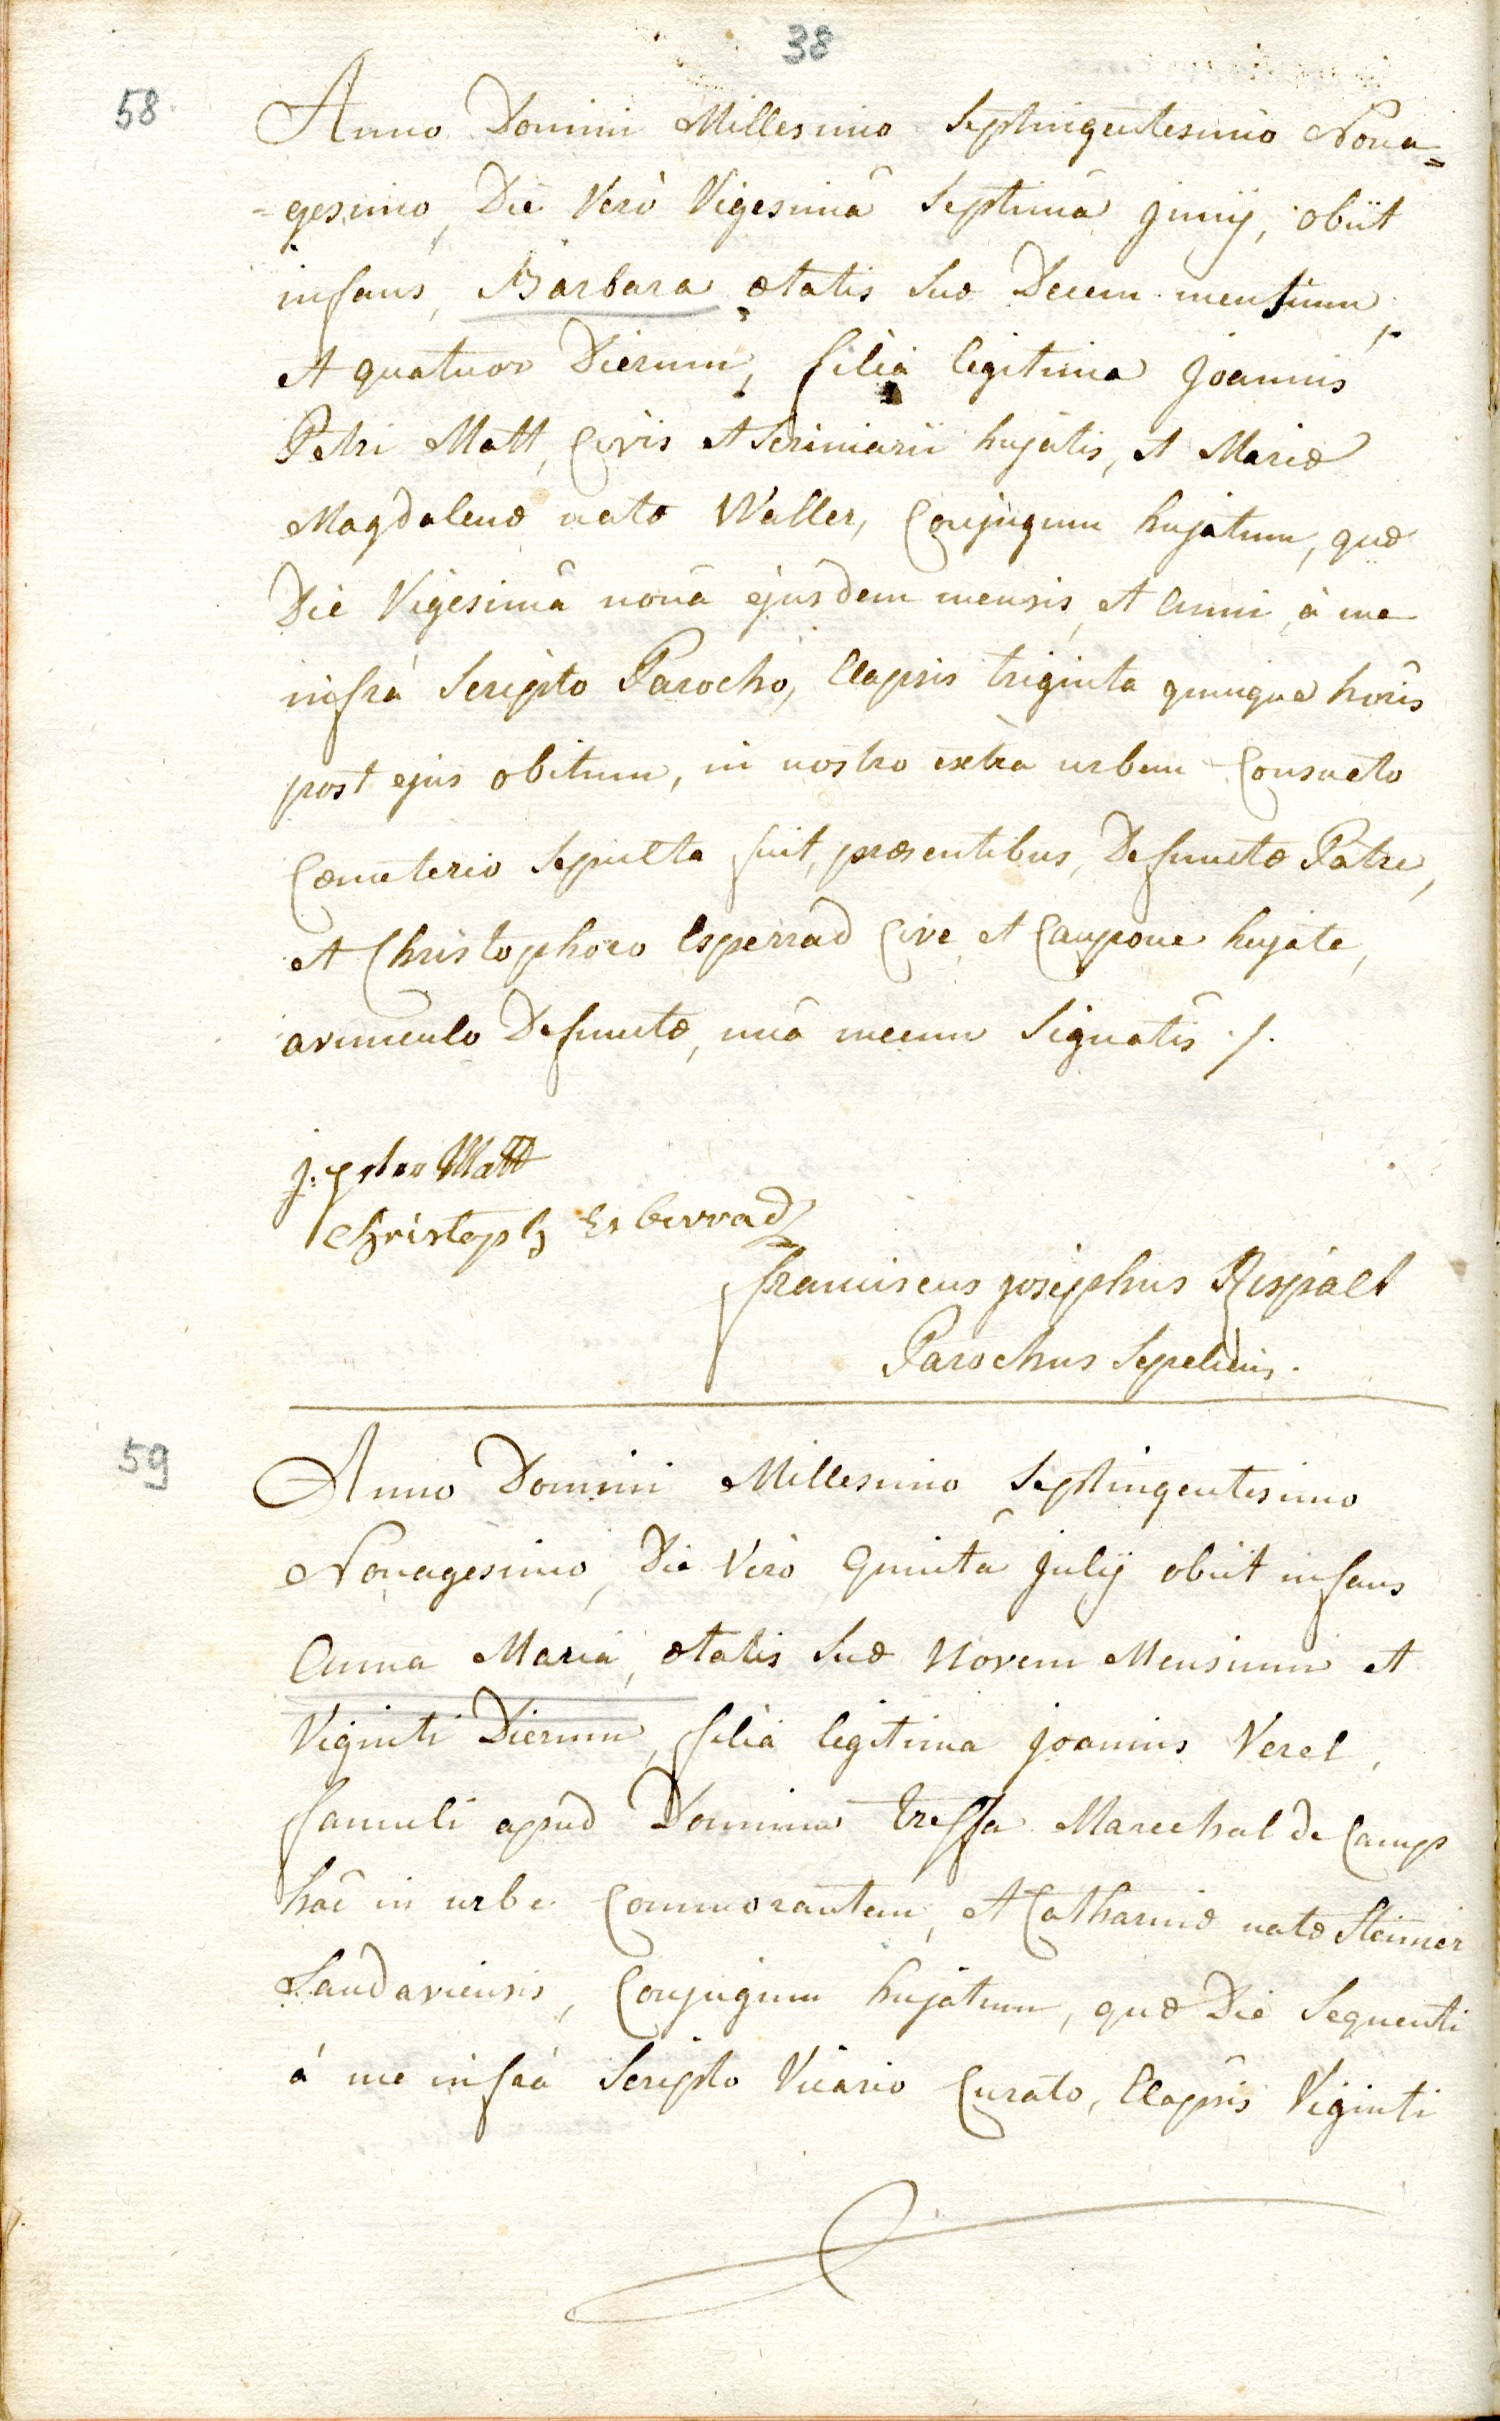 38
58
Anno Domini Millesimo Septingentesimo Nona=
=gesimo, Die Verò Vigesimâ Septimâ Junij, obiit
infans, Barbara ætatis suæ Decem mensium,
et quatuor Dierum, filia legitima Joannis
Petri Matt, Civis et Scriniarii hujatis, et Mariæ
Magdalenæ natæ Waller, Conjugum hujatum, quæ
Die Vigesimâ nonâ ejusdem mensis, et anni, à me
infrà Scripto Parocho, Elapsis triginta quinque horis
post ejus obitum, in nostro extra urbem Consueto
Cœmeterio Sepulta fuit, præsentibus, Defunctæ Patre,
et Christophoro Esperrad Cive, et Caupone hujate,
avunculo Defunctæ, unâ mecum Signatis ./.
J. peter Matt
Christoph Esberrad
franciscus josephus Rispalt
Parochus Sepeliens.
59
Anno Domini Millesimo Septingentesimo
Nonagesimo, Die Verò Quintâ Julij obiit infans
Anna Maria, ætatis Suæ Novem Mensium et
Viginti Dierum, filia legitima Joannis Verel,
famuli apud Dominum Treffa Marechal de Camp
hac in urbe Commorantem, et Catharinæ natæ Steimer
Landaviensis, Conjugum hujatum, quæ Die Sequenti
à me infrà Scripto Vicario Curato, Elapsis Viginti